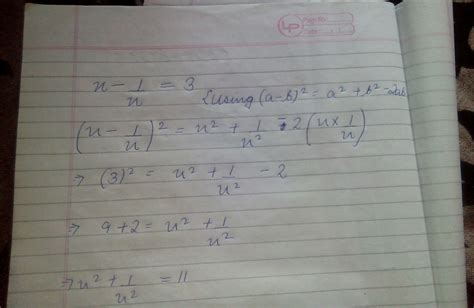 LP Page No.
Date
x - 1/x = 3 {using (a-b)² = a² + b² - 2ab
(x - 1/x)² = x² + 1/x² - 2(x × 1/x)
⇒ (3)² = x² + 1/x² - 2
⇒ 9 + 2 = x² + 1/x²
⇒ x² + 1/x² = 11